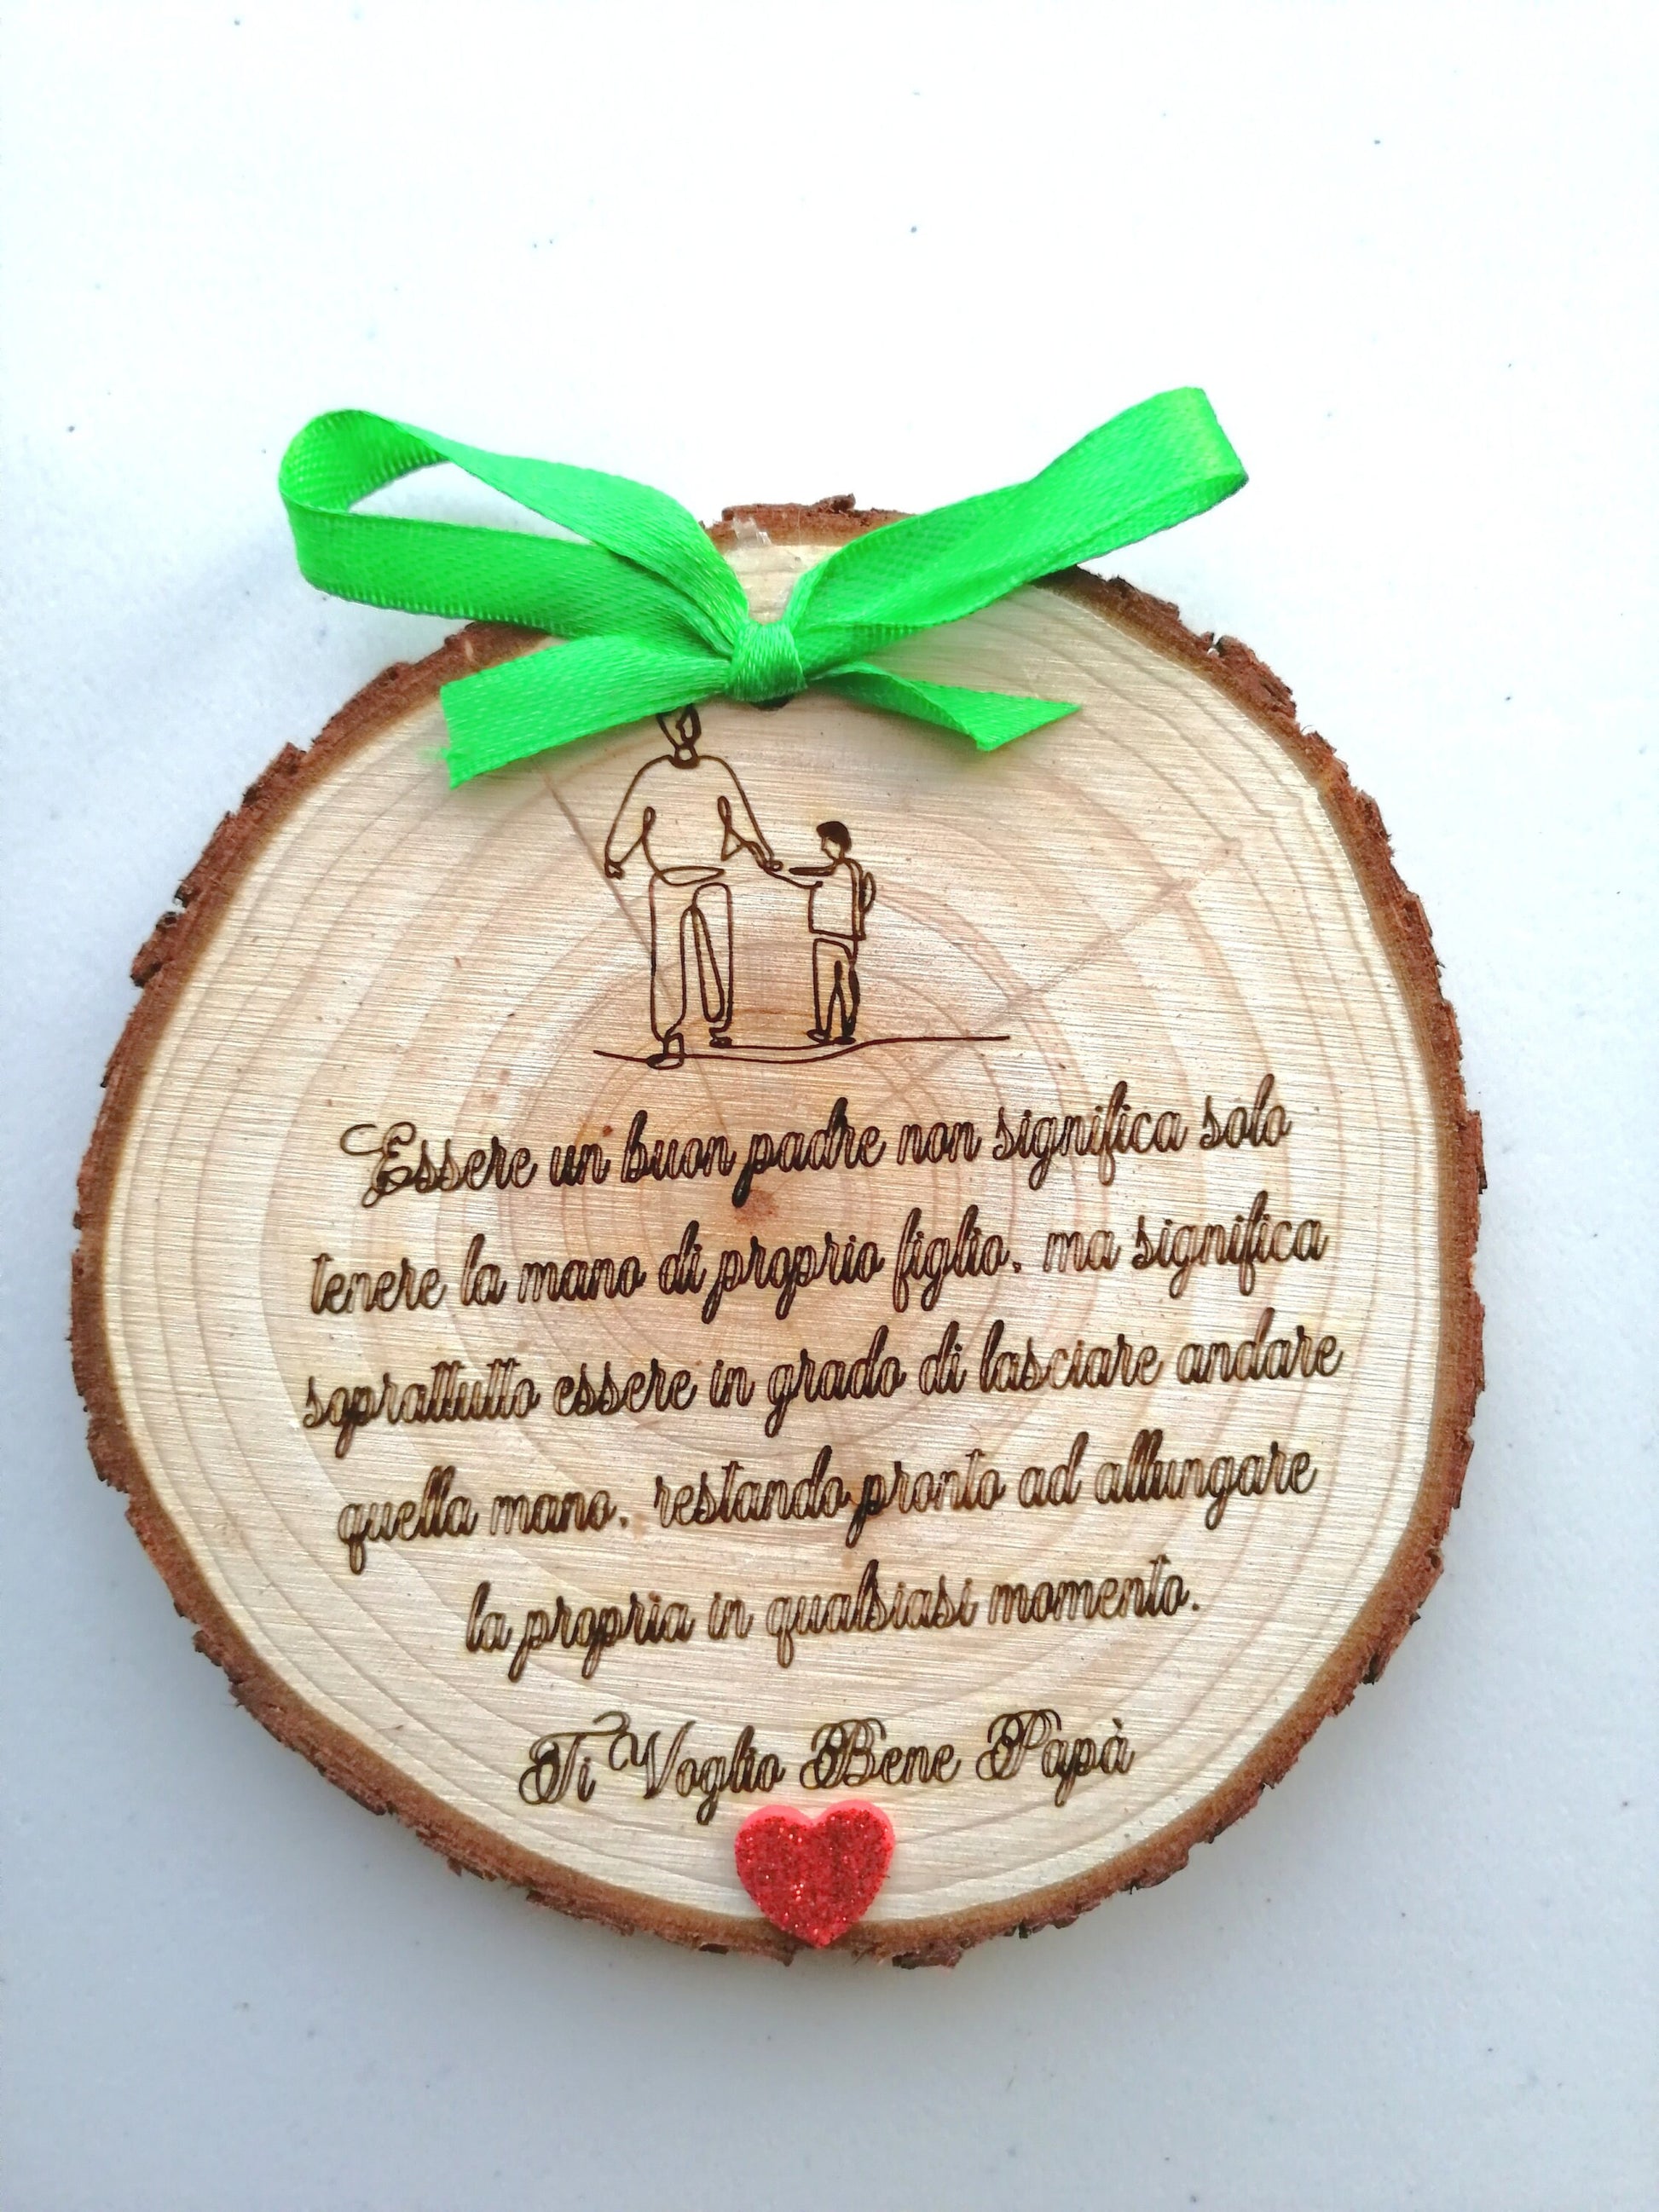 Essere un buon padre non significa solo
tenere la mano di proprio figlio, ma significa
soprattutto essere in grado di lasciare andare
quella mano, restando pronto ad allungare
la propria in qualsiasi momento.
Ti Voglio Bene Papà